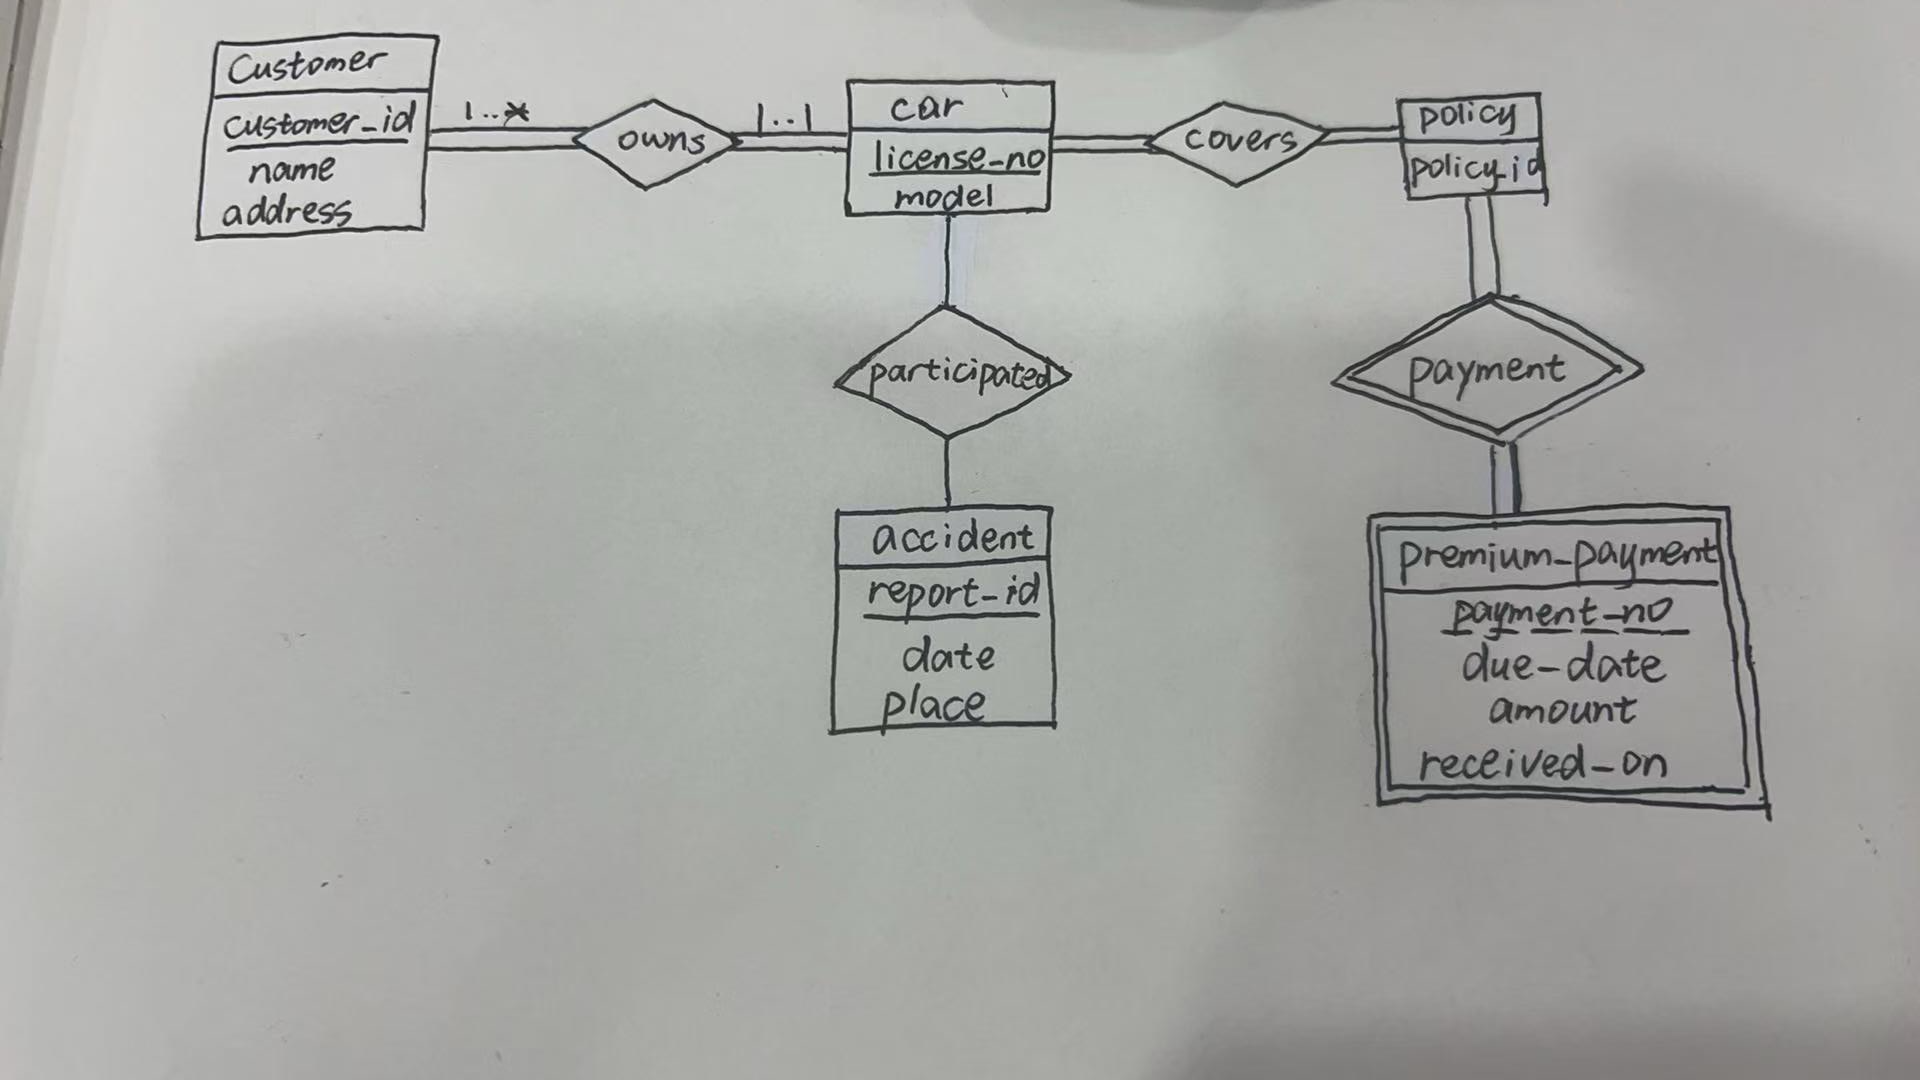 Customer
customer_id
name
address
1..*
owns
1..1
car
license_no
model
covers
policy
policy_id
participated
payment
accident
report_id
date
place
premium_payment
payment_no
due_date
amount
received_on